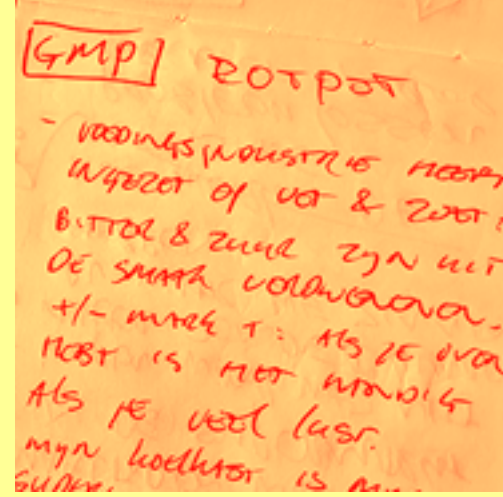 [GMP] ROTPOT
- VOEDINGSINDUSTRIE HEEFT
INGEZET OP VET & ZOET.
BITTER & ZUUR ZIJN UIT
DE SMAAK VERDWENEN.
+/- MARK T: ALS JE OVER
HEBT IS HET HANDIG
ALS JE VEEL LUST.
MIJN KOELKAST IS MIJN